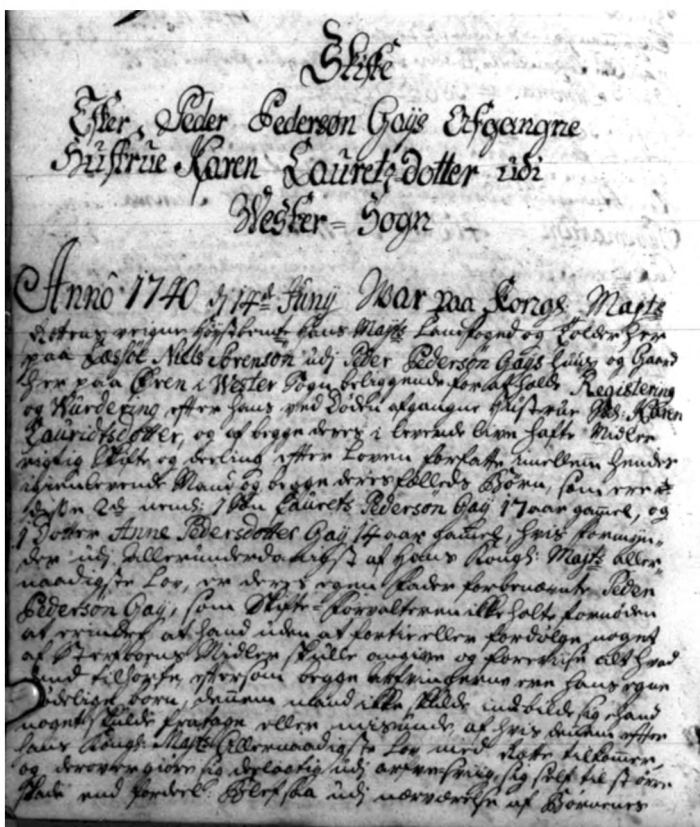 Skifte
Efter Peder Pedersøn Gaÿs Afgangne
Hustrue Karen Lauretz-dotter udi
Wester-Sogn
Anno 1740 dj 14de Junÿ War paa Kongl: Majts
vegne Hans Majts Landfoged og Tolder her
paa Læssøe Niels Sørenson udj Peder Pedersøn Gaÿs Huus og Gaard
her paa Øren i Wester Sogn beliggende for at holde Registering
og Wurdering efter hans ved Døden afgangne Hustrue Karen
Lauridtsdotter, og af begge deres i levende live hafte Midler
rigtig Skifte og deeling efter Loven forfatte imellem hendes
igienlevende Mand og begge deres fælleds Børn, som ere
2de neml: 1 Søn Laurets Pedersøn Gaÿ 17 aar gammel, og
1 Dotter Anne Pedersdotter Gaÿ 14 aar gammel, hvis formÿn-
der udj allerunderdanigst af Hans Kongl: Majts aller-
naadigste Lov, er deres egen Fader forbenævnte Peder
Pedersøn Gaÿ, som Skifte-Forvalteren ikke holte fornøden
at erindre at hand uden at fortie eller fordølge noget
af Sterfboens Midler skulle angive og forevise alt hvad
tilhørte, eftersom begge arfvingerne ere hans egne
børn, dennem mand ikke skulde indbilde sig hand
noget skulde fratage eller misunde af hvis dennem efter
Hans Kongl: Majts Allernaadigste Lov med rette tilkommer,
og derover giøre sig deelagtig udj sig self til større
skade end fordeel: Blef saa udj nærværelse af Børnenes